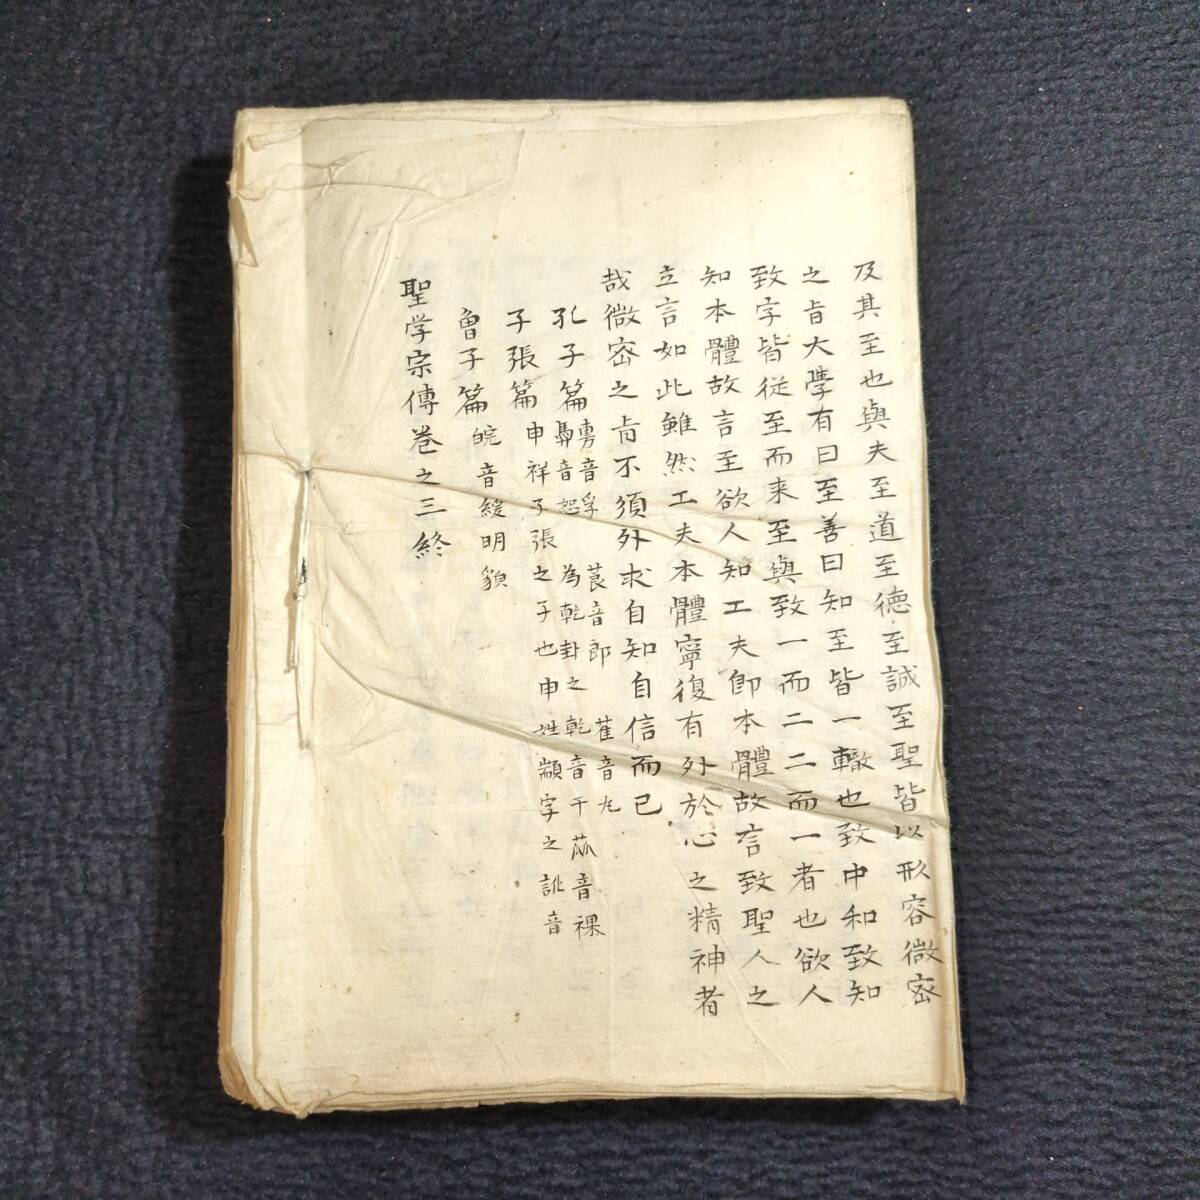 及其至也與夫至道至德至誠至聖皆以形容微密
之旨大學有曰至善曰知至皆一轍也致中和致知
致字皆從至而来至與致一而二二而一者也欲人
知本體故言至欲人知工夫卽本體故言致聖人之
立言如此雖然工夫本體寧復有外於心之精神者
哉微密之旨不須外求自知自信而已
孔子篇 旉音孚 萇音郎 萑音丸
馵音恕 為乾卦之乾音干 蓏音裸
子張篇 申祥子張之子也申姓顓字之訛音
魯子篇 皖音緩明貌
聖学宗傳卷之三終